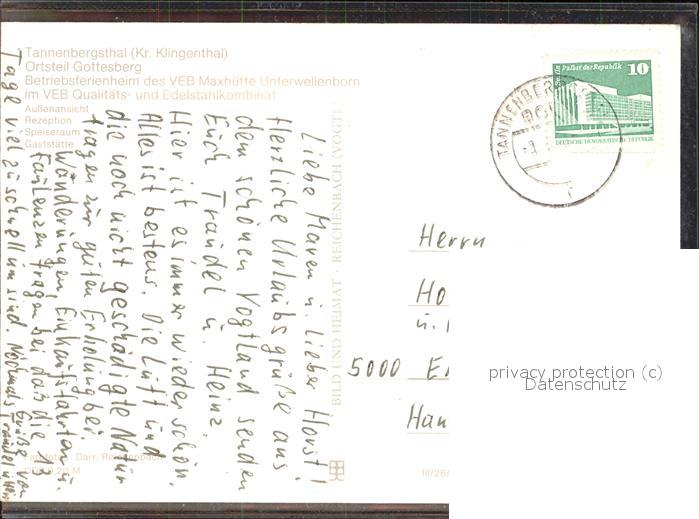 Tannenbergsthal (Kr. Klingenthal)
Ortsteil Gottesberg
Betriebsferienheim des VEB Maxhütte Unterwellenborn
im VEB Qualitäts- und Edelstahlkombinat
Außenansicht
Rezeption
Speiseraum
Gaststätte
Liebe Maren u. lieber Horst!
Herzliche Urlaubsgrüße aus
dem schönen Vogtland senden
Euch Traudel u. Heinz.
Hier ist es immer wieder schön.
Alles ist bestens. Die Luft und
die noch nicht geschädigte Natur
tragen zur guten Erholung bei.
Wanderungen, Einkaufsfahrten u.
Faulenzen tragen bei daß die 13
Tage viel zu schnell um sind. Nochmals
Grüße von
Traudel u. Heinz
Darr, Reichenbach
20 M
BILD UND HEIMAT · REICHENBACH (VOGTL
III/26/
Berlin Palast der Republik
10
DEUTSCHE DEMOKRATISCHE REPUBLIK
TANNENBERGSTHAL
Herrn
Ho
u.
5000 E
Han
privacy protection (c)
Datenschutz